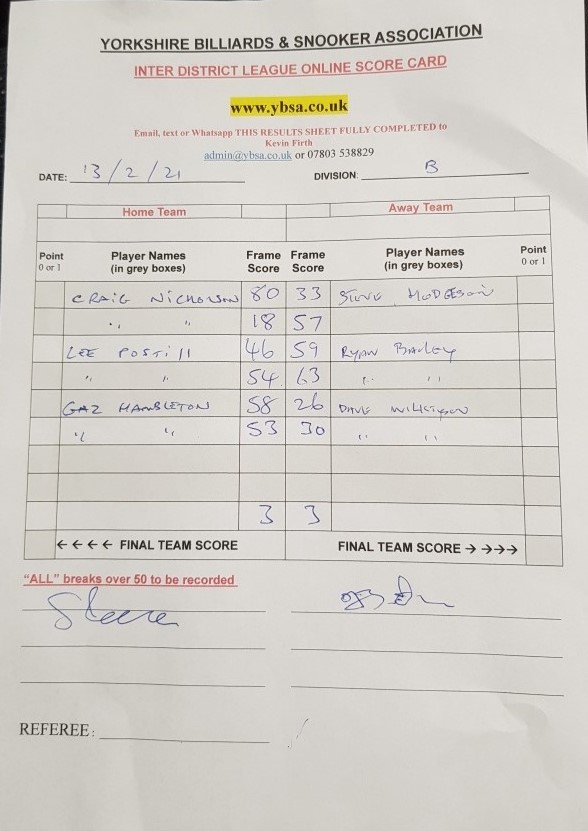 YORKSHIRE BILLIARDS & SNOOKER ASSOCIATION
INTER DISTRICT LEAGUE ONLINE SCORE CARD
www.ybsa.co.uk
Email, text or Whatsapp THIS RESULTS SHEET FULLY COMPLETED to
Kevin Firth
admin@ybsa.co.uk or 07803 538829
DATE: 13/2/21 DIVISION: B
Home Team Away Team
Point 0 or 1 Player Names (in grey boxes) Frame Score Frame Score Player Names (in grey boxes) Point 0 or 1
CRAIG NICHOLSON 80 33 STEVE HODGESON
" " 18 57
LEE POSTILL 46 59 RYAN BAILEY
" " 54 63 " "
GAZ HAMBLETON 58 26 DAVE WILKINSON
" " 53 30 " "
3 3
←←←← FINAL TEAM SCORE FINAL TEAM SCORE →→→→
"ALL" breaks over 50 to be recorded
REFEREE: